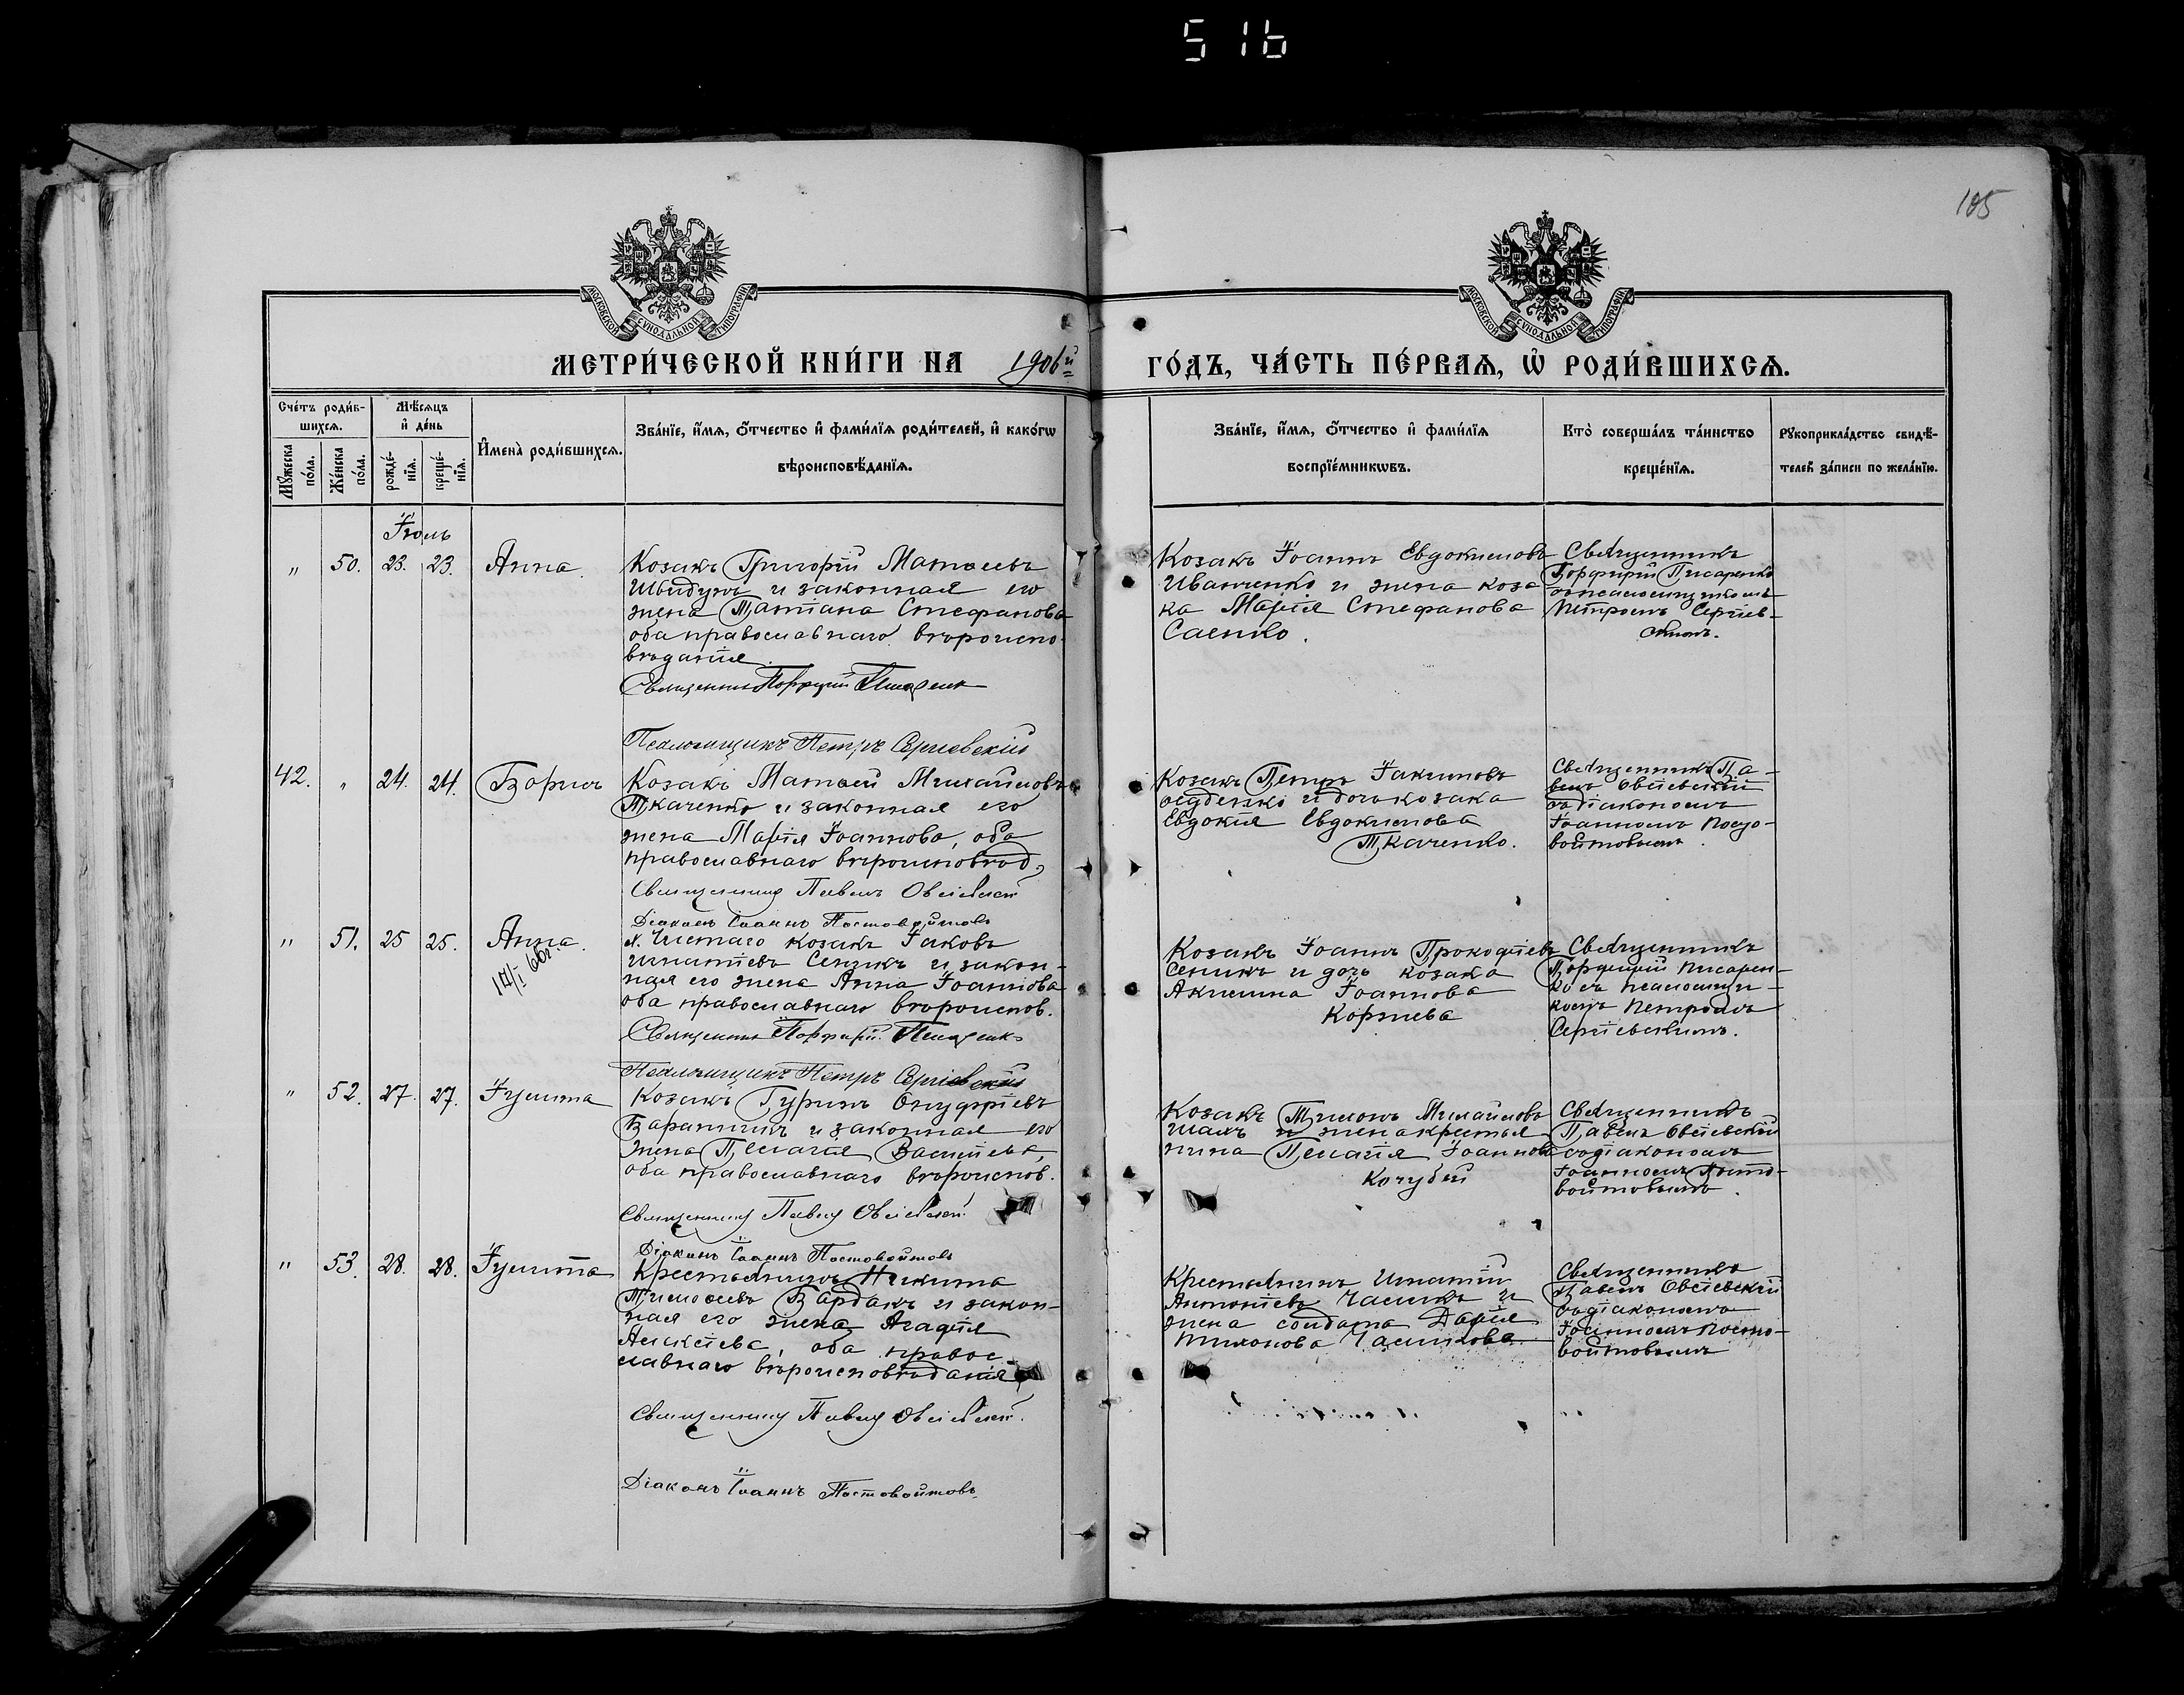 516
105
МОСКОВСКОЙ СѴНОДАЛЬНОЙ ТИПОГРАФІИ
МОСКОВСКОЙ СѴНОДАЛЬНОЙ ТИПОГРАФІИ
МЕТРИ́ЧЕСКОЙ КНИ́ГИ НА 1906й
ГО́ДЪ, ЧА́СТЬ ПЕ́РВАѦ, Ѡ҆ РОДИ́ВШИХСѦ.
Сче́тъ роди́в-
шихсѧ.
Мꙋ́жеска по́ла.
Же́нска по́ла.
Мѣ́сѧцъ
и҆ де́нь
рожде́-
нїѧ.
креще́-
нїѧ.
И҆мена̀ роди́вшихсѧ.
Зва́нїе, и҆́мѧ, ѻ҆́тчество и҆ фами́лїѧ роди́телей, и҆ како́гѡ
вѣроисповѣ́данїѧ.
Зва́нїе, и҆́мѧ, ѻ҆́тчество и҆ фами́лїѧ
воспрїе́мникѡвъ.
Кто̀ соверша́лъ та́инство
креще́нїѧ.
Рꙋкоприкла́дство свидѣ́-
телей за́писи по жела́нїю.
Іюль
" 50. 23. 23. Анна.
Козакъ Григорій Матѳеевъ
Швидунъ и законная его
жена Татіана Стефанова
оба православнаго вѣроиспо-
вѣданія.
Священникъ Порфирій Писаренко
Псаломщикъ Петръ Сергіевскій
Козакъ Іоаннъ Евдокимовъ
Иванченко и жена коза
ка Марія Стефанова
Саенко.
Священникъ
Порфирій Писаренко
съ псаломщикомъ
Петромъ Сергіев-
скимъ.
42. " 24. 24. Борисъ
Козакъ Матѳей Михайловъ
Ткаченко и законная его
жена Марія Іоаннова, оба
православнаго вѣроисповѣд.
Священникъ Павелъ Овсіевскій
Діаконъ Іоаннъ Постовойтовъ
Козакъ Петръ Іакимовъ
и дочь козака
Евдокія Евдокимова
Ткаченко.
Священникъ Па-
велъ Овсіевскій
съ діакономъ
Іоанномъ Посто-
войтовымъ.
" 51. 25 25. Анна.
х. Чистаго козакъ Іаковъ
Игнатіевъ Сеникъ и закон-
ная его жена Анна Іоаннова
оба православнаго вѣроиспов.
Священникъ Порфирій Писаренко
Псаломщикъ Петръ Сергіевскій
Козакъ Іоаннъ Прокофіевъ
Сеникъ и дочь козака
Акилина Іоаннова
Коржева
Священникъ
Порфирій Писарен-
ко съ псаломщи-
комъ Петромъ
Сергіевскимъ.
" 52. 27. 27. Іулитта
Козакъ Гурій Онуфріевъ
Баранникъ и законная его
жена Пелагія Василіева,
оба православнаго вѣроиспов.
Священникъ Павелъ Овсіевскій
Діаконъ Іоаннъ Постовойтовъ
Козакъ Тимонъ Михайловъ
и жена крестья
нина Пелагія Іоаннова
Кочубей
Священникъ
Павелъ Овсіевскій
съ діакономъ
Іоанномъ Посто-
войтовымъ.
" 53. 28. 28. Іулитта
Крестьянинъ Никита
Тимоѳеевъ Бардакъ и закон-
ная его жена Агафія
Алексіева, оба правос-
лавнаго вѣроисповѣданія
Священникъ Павелъ Овсіевскій.
Діаконъ Іоаннъ Постовойтовъ.
Крестьянинъ Игнатій
Антоніевъ и
жена солдата Дарія
Тихонова
Священникъ
Павелъ Овсіевскій
съ діакономъ
Іоанномъ Посто-
войтовымъ